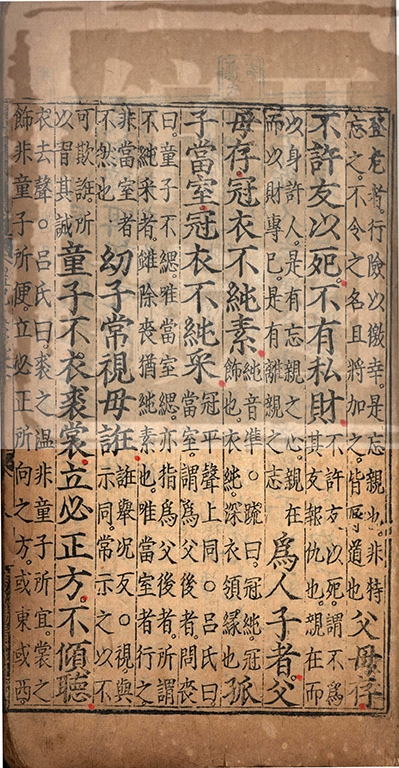 登危者。行險以徼幸。是忘親也。非特
忘之。不令之名且將加之。皆辱道也
父母存
不許友以死。不有私財。
不許友以死。謂不爲
其友報仇也。親在而
以身許人。是有忘親之心。親在
而以財專己。是有離親之志
爲人子者。父
母存。冠衣不純素。
純音準。○疏曰。冠純。冠
飾也。衣純。深衣領緣也
孤
子當室。冠衣不純采。
冠平聲。上同。○呂氏曰
當室。謂爲父後者。問喪
曰。童子不緦。唯當室緦。亦指爲父後者。所謂
不純采者。雖除喪猶純素也。唯當室者行之
非當室者
不然也
幼子常視毋誑。
誑舉況反。○視與
示同。常示之以不
可欺誑。所
以習其誠
童子不衣裘裳。立必正方。不傾聽
衣去聲。○呂氏曰。裘之溫。非童子所宜。裳之
飾。非童子所便。立必正所向之方。或東或西。